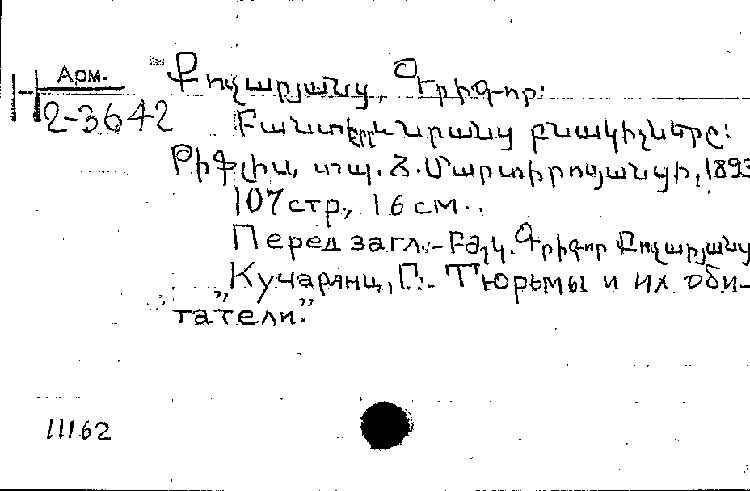 Арм.
2-3642
Քուչարյանց, Գրիգոր:
Բանտերն նրանց բնակիչները:
Թիֆլիս, տպ. Հ. Մարտիրոսյանցի, 1893
107 стр., 16 см.
Перед загл.:- Բժշկ. Գրիգոր Քուչարյանց
"Кучарянц, Г.:- Тюрьмы и их оби-
татели."
11162